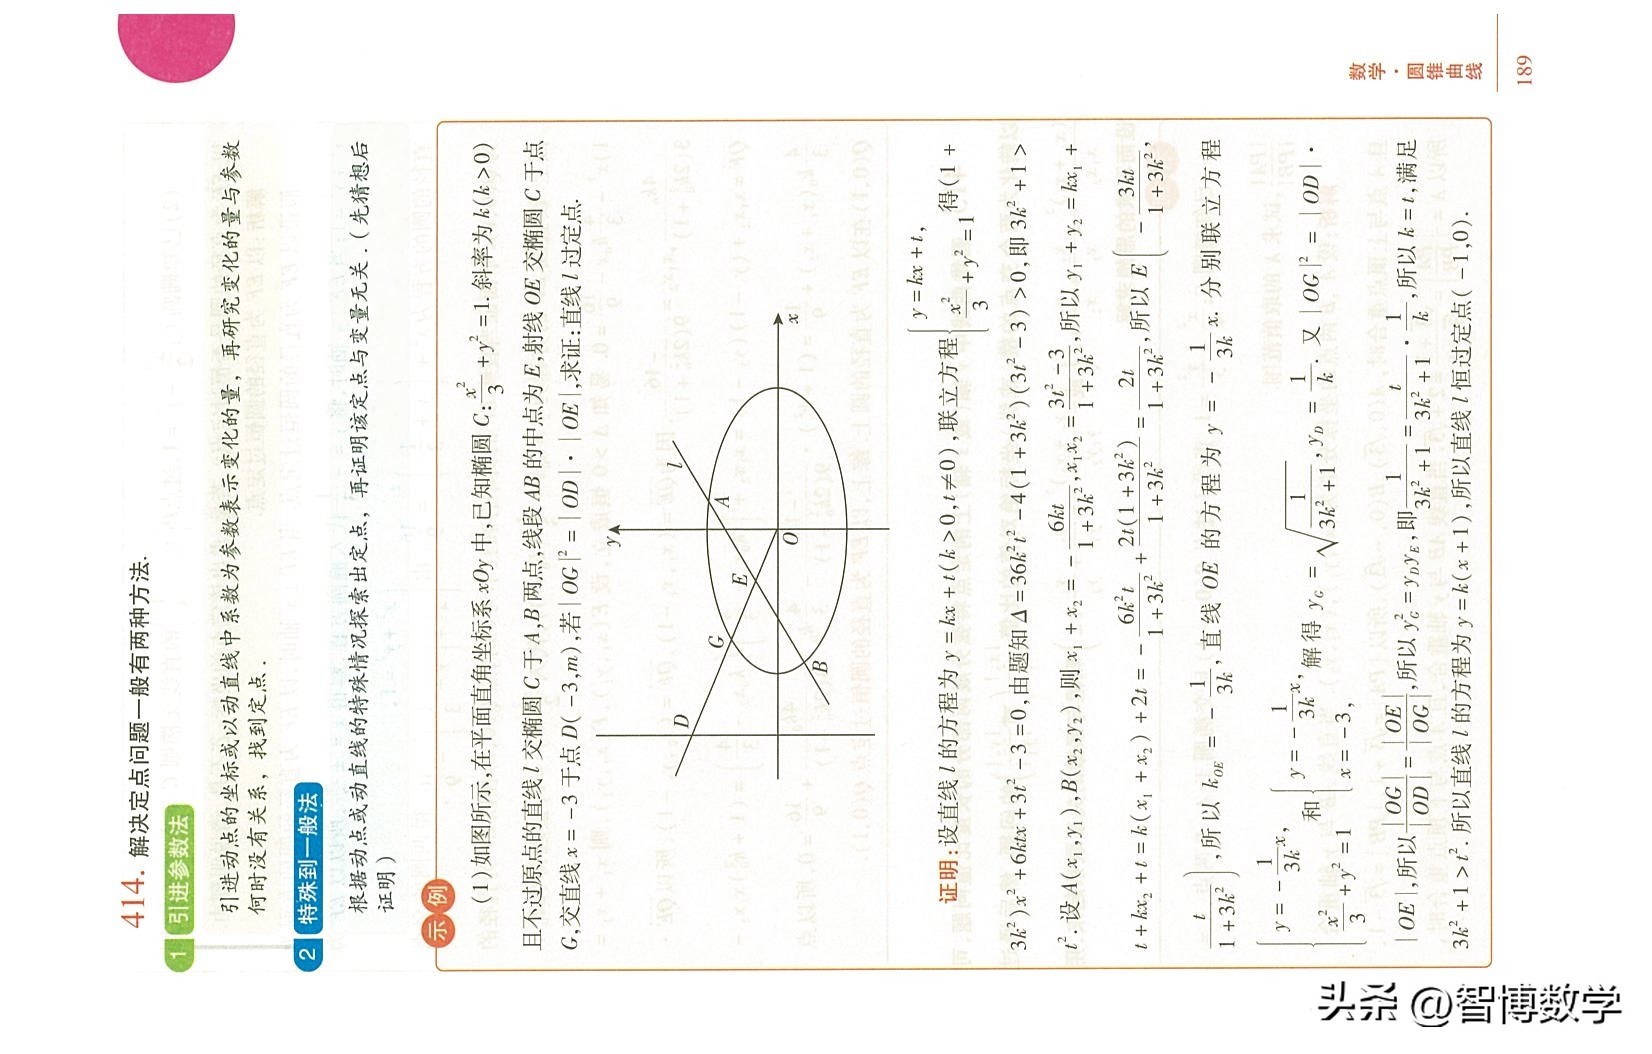 414. 解决定点问题一般有两种方法.
1 引进参数法
引进动点的坐标或以动直线中系数为参数表示变化的量，再研究变化的量与参数
何时没有关系，找到定点.
2 特殊到一般法
根据动点或动直线的特殊情况探索出定点，再证明该定点与变量无关.(先猜想后
证明)
示例
(1)如图所示,在平面直角坐标系 xOy 中,已知椭圆 C: x²/3 + y² = 1. 斜率为 k(k>0)
且不过原点的直线 l 交椭圆 C 于 A,B 两点,线段 AB 的中点为 E,射线 OE 交椭圆 C 于点
G,交直线 x = -3 于点 D(-3,m),若|OG|² = |OD|·|OE|,求证:直线 l 过定点.
y
l
A
E
G
D
O
x
B
证明:设直线 l 的方程为 y = kx + t(k>0,t≠0),联立方程{y = kx + t, x²/3 + y² = 1 得(1 +
3k²)x² + 6ktx + 3t² - 3 = 0,由题知 Δ = 36k²t² - 4(1 + 3k²)(3t² - 3) > 0,即 3k² + 1 >
t². 设 A(x₁,y₁),B(x₂,y₂),则 x₁ + x₂ = - 6kt/(1 + 3k²), x₁x₂ = (3t² - 3)/(1 + 3k²),所以 y₁ + y₂ = kx₁ +
t + kx₂ + t = k(x₁ + x₂) + 2t = - 6k²t/(1 + 3k²) + 2t(1 + 3k²)/(1 + 3k²) = 2t/(1 + 3k²),所以 E(- 3kt/(1 + 3k²),
t/(1 + 3k²)),所以 k_OE = - 1/3k, 直线 OE 的方程为 y = - 1/3k x. 分别联立方程
{y = - 1/3k x, x²/3 + y² = 1 和{y = - 1/3k x, x = -3, 解得 y_G = √(1/(3k² + 1)), y_D = 1/k. 又|OG|² = |OD|·
|OE|,所以|OG|/|OD| = |OE|/|OG|,所以 y_G² = y_D y_E,即 1/(3k² + 1) = t/(3k² + 1)·1/k,所以 k = t,满足
3k² + 1 > t². 所以直线 l 的方程为 y = k(x + 1),所以直线 l 恒过定点(-1,0).
数学·圆锥曲线
189
头条 @智博数学